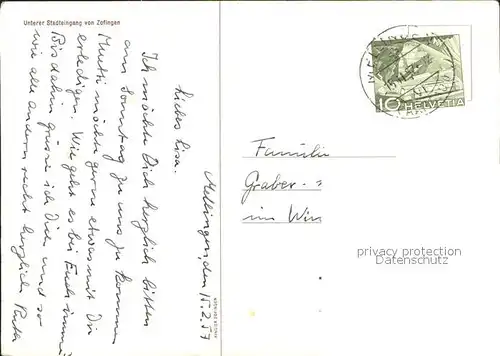 Unterer Stadteingang von Zofingen
Mellingen, den 15.2.57
Liebes Lisa.
Ich möchte Dich herzlich bitten
am Sonntag zu uns zu kommen
Mutti möchte gerne etwas mit Dir
erledigen. Wie geht es bei Euch immer
Bis dahin grüsse ich Dich und so
wie alle andern recht herzlich Ruth
10 HELVETIA
Familie
Graber-
im Win
privacy protection
Datenschutz